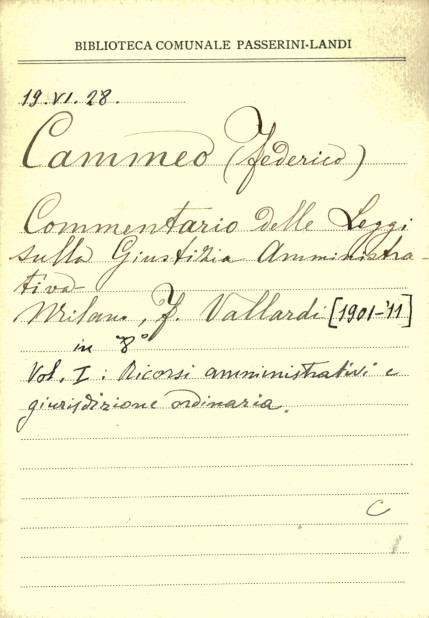 BIBLIOTECA COMUNALE PASSERINI-LANDI
19.VI.28.
Cammeo (Federico)
Commentario delle Leggi
sulla Giustizia Amministra-
tiva-
Milano, F. Vallardi [1901-'11]
in 8°
Vol. I: Ricorsi amministrativi e
giurisdizione ordinaria.
C